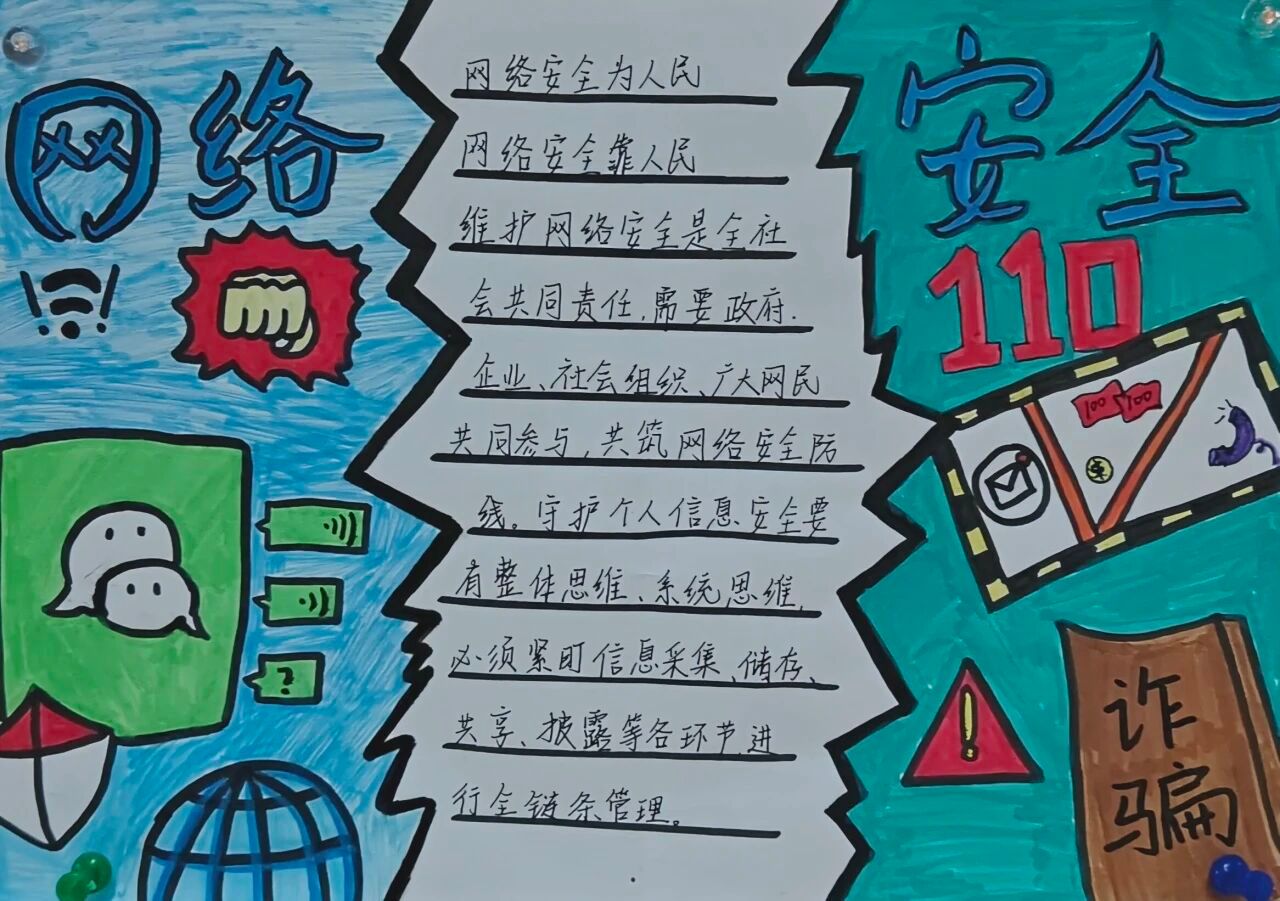 网络
安全
110
网络安全为人民
网络安全靠人民
维护网络安全是全社
会共同责任,需要政府.
企业、社会组织、广大网民
共同参与,共筑网络安全防
线。守护个人信息安全要
有整体思维、系统思维,
必须紧盯信息采集、储存、
共享、披露等各环节,进
行全链条管理。
?
100 100
$
!
诈
骗